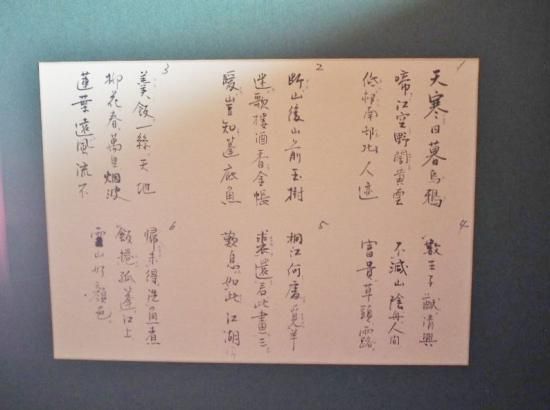 1
天寒日暮烏鴉
啼江空野闊黃雲
低村南村北人迹
2
斷山後山前玉樹
迷歌樓酒香金帳
暖豈知篷底魚
3
羹飯一絲天地
柳花春萬里烟波
蓮葉遠風流不
4
數王子猷清興
不減山陰舟人間
富貴草頭露
5
桐江何處覓羊
裘還君此畫三
歎息如此江湖
6
歸未得洗魚煮
飯捲孤篷江上
雪山好顏色